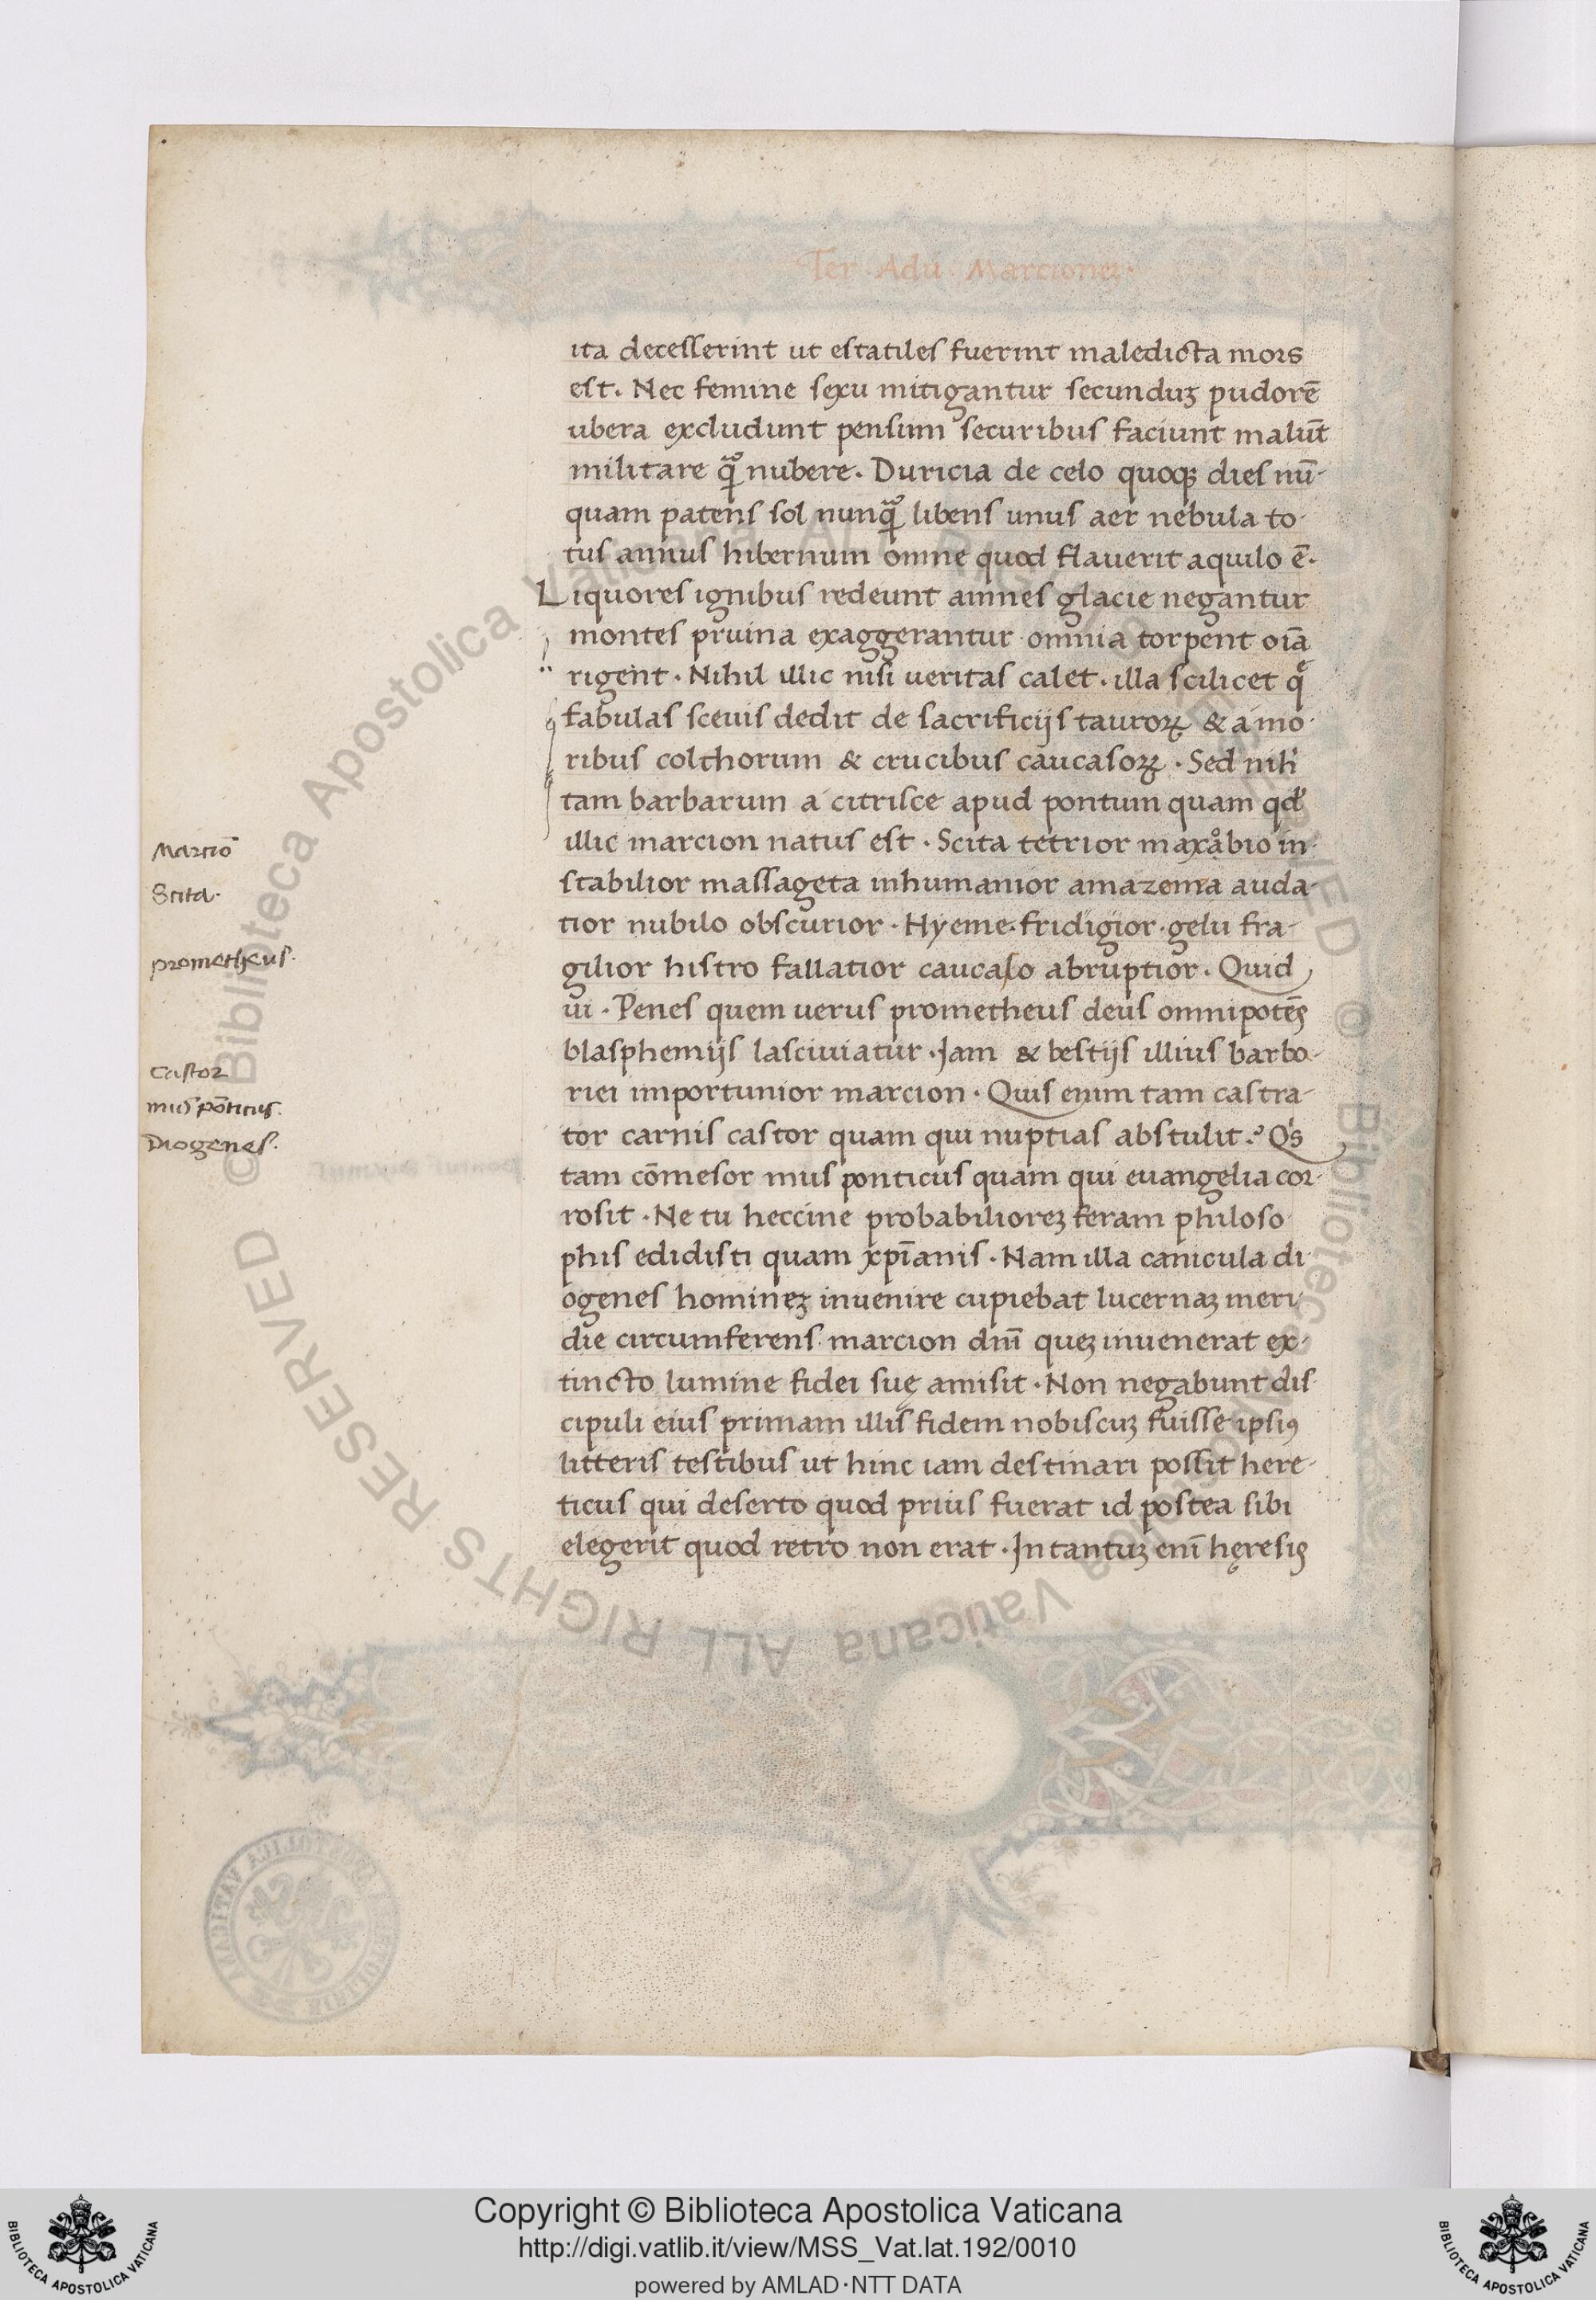 Ter · Adu · Marcionē ·
ita decesserint ut escatiles fuerint maledicta mors
est. Nec femine sexu mitigantur secunduꝫ pudorē
ubera excludunt pensum securibus faciunt malūt
militare qᷓ nubere. Duricia de celo quoqꝫ dies nū-
quam patens sol nunqᷓ libens unus aer nebula to-
tus annus hibernum omne quod flauerit aquilo ē.
Liquores ignibus redeunt amnes glacie negantur
montes pruina exaggerantur omnia torpent oīa
rigent · Nihil illic nisi ueritas calet · illa scilicet q̄
fabulas sceuis dedit de sacrificijs tauroꝝ & amo-
ribus colchorum & crucibus caucasoꝝ · Sed nihˡ
tam barbarum a citrisce apud pontum quam qđ
illic marcion natus est · Scita tetrior maxabio in-
stabilior massageta inhumanior amazema auda-
tior nubilo obscurior · Hyeme · fridigior · gelu fra-
gilior histro fallatior caucaso abruptior · Quid
ui · Penes quem uerus prometheus deus omnipotēs
blasphemijs lasciuiatur · Jam & bestijs illius barba-
riei importunior marcion · Quis enim tam castra-
tor carnis castor quam qui nuptias abstulit? Qⁱs
tam cōmesor mus ponticus quam qui euangelia cor-
rosit · Ne tu heccine probabilioreꝫ feram philoso-
phis edidisti quam xp̄ianis · Nam illa canicula di-
ogenes homineꝫ inuenire cupiebat lucernaꝫ meri-
die circumferens · marcion dnī queꝫ inuenerat ex-
tincto lumine fidei suę amisit · Non negabunt dis-
cipuli eius primam illis fidem nobiscuꝫ fuisse ipsiꝰ
litteris testibus ut hinc iam destinari possit here-
ticus qui deserto quod prius fuerat id postea sibi
elegerit quod retro non erat · In tantuꝫ enī hęresis
Marciō
Scita ·
prometheus ·
Castor
mus pōticus ·
Diogenes ·
© Biblioteca Apostolica Vaticana ALL RIGHTS RESERVED
© Biblioteca Apostolica Vaticana ALL RIGHTS RESERVED
Copyright © Biblioteca Apostolica Vaticana
http://digi.vatlib.it/view/MSS_Vat.lat.192/0010
powered by AMLAD·NTT DATA
BIBLIOTECA APOSTOLICA VATICANA
BIBLIOTECA APOSTOLICA VATICANA